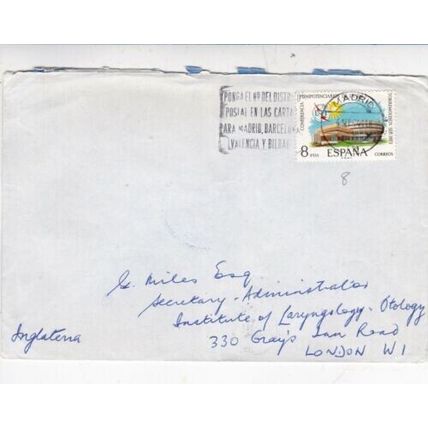 PONGA EL Nº DEL DISTR
POSTAL EN LAS CARTA
ARA MADRID, BARCELO
VALENCIA Y BILBA
MADRID
CONFERENCIA
PLENIPOTENCIARIOS
8 PTAS ESPAÑA CORREOS
8
G. Miles Esq
Secretary - Administration
Institute of Laryngology - Otology
330 Gray's Inn Road
LONDON W1
Inglaterra